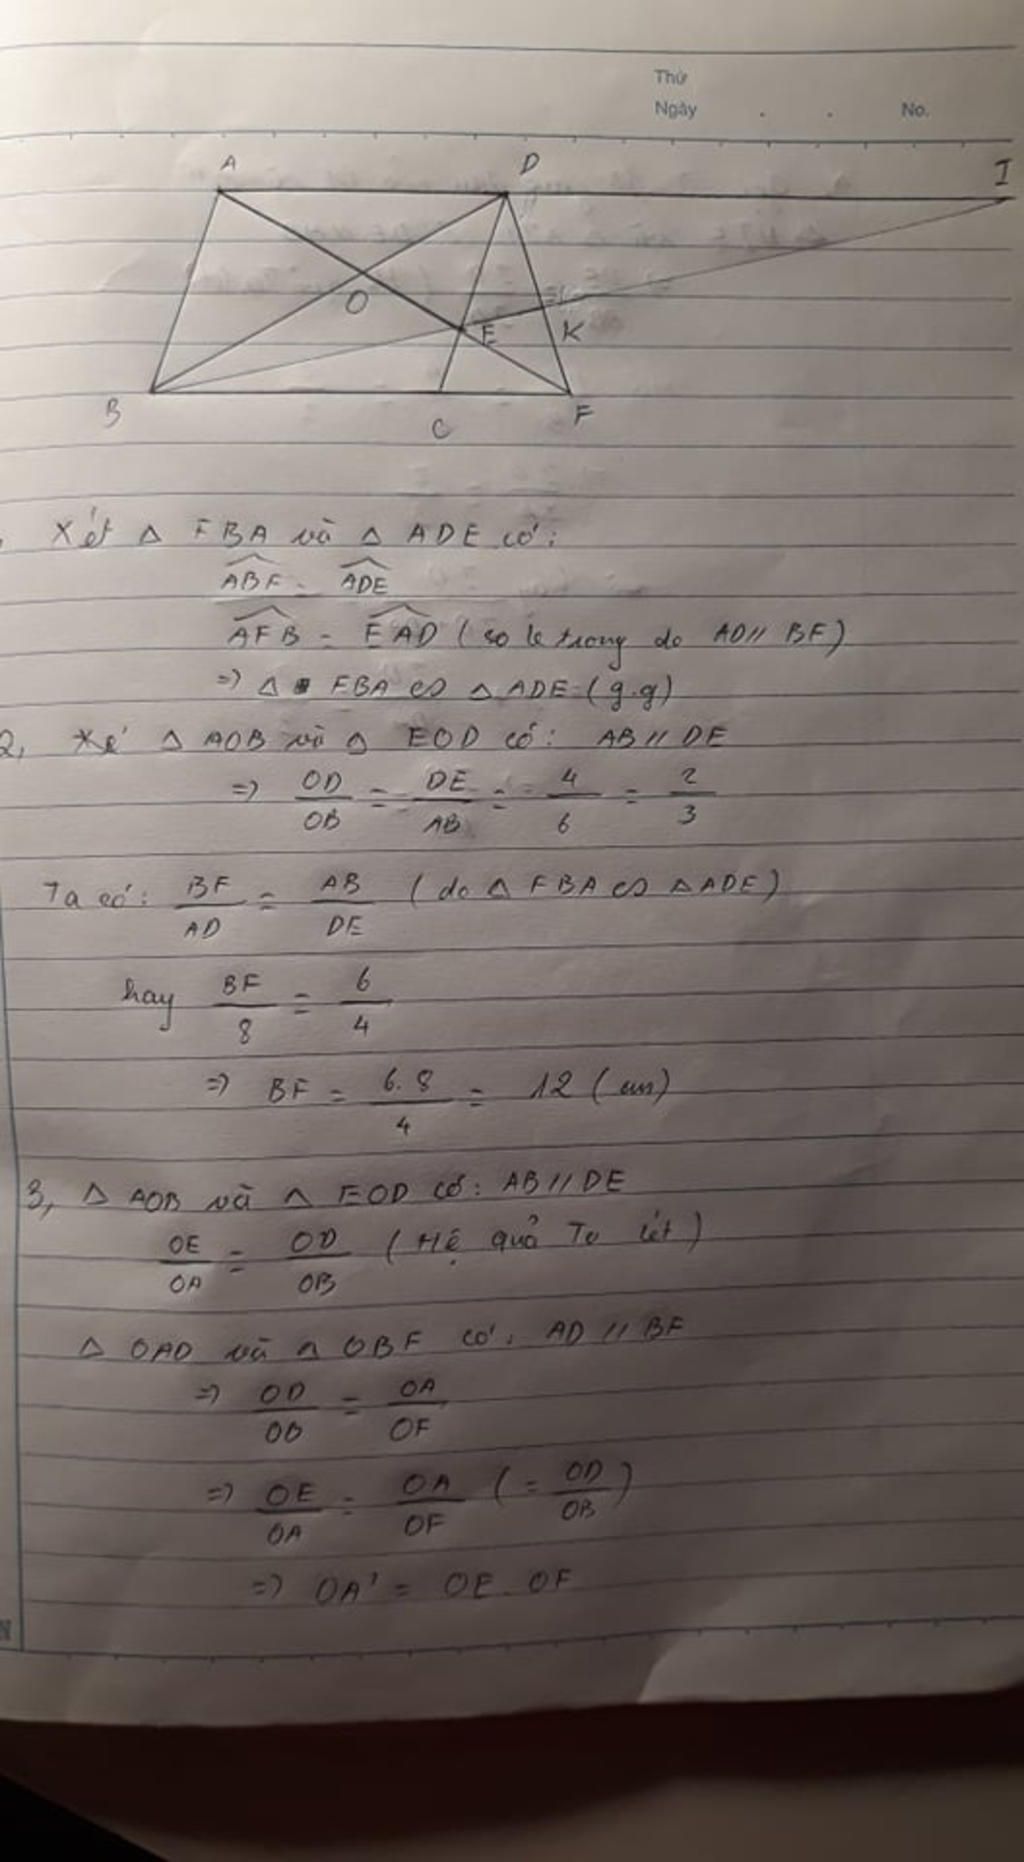 Thứ
Ngày . . No.
A D I
O E K
B C F
Xét △ FBA và △ ADE có:
ABF = ADE
AFB = EAD (so le trong do AD// BF)
=> △ FBA ∽ △ ADE (g.g)
2, Xé △ AOB và △ EOD có: AB // DE
=> OD/OB = DE/AB = 4/6 = 2/3
Ta có: BF/AD = AB/DE (do △ FBA ∽ △ ADE)
hay BF/8 = 6/4
=> BF = 6.8/4 = 12 (cm)
3, △ AOB và △ EOD có: AB // DE
OE/OA = OD/OB (Hệ quả Ta lét)
△ OAD và △ OBF có: AD // BF
=> OD/OB = OA/OF
=> OE/OA = OA/OF (= OD/OB)
=> OA² = OE . OF